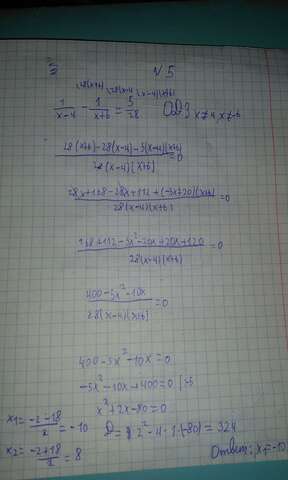 N 5
28(x+6) \28(x-4) (x-4)(x+6)
1/(x-4) - 1/(x+6) = 5/28 ОДЗ x≠4 x≠-6
(28(x+6)-28(x-4)-5(x-4)(x+6))/(28(x-4)(x+6)) = 0
(28x+168-28x+112+(-5x+20)(x+6))/(28(x-4)(x+6)) = 0
(168+112-5x²-30x+20x+120)/(28(x-4)(x+6)) = 0
(400-5x²-10x)/(28(x-4)(x+6)) = 0
400-5x²-10x=0
-5x²-10x+400=0 |:-5
x²+2x-80=0
x₁ = (-2-18)/2 = -10 D = 2²-4·1·(-80) = 324
x₂ = (-2+18)/2 = 8 Ответ: x₁=-10